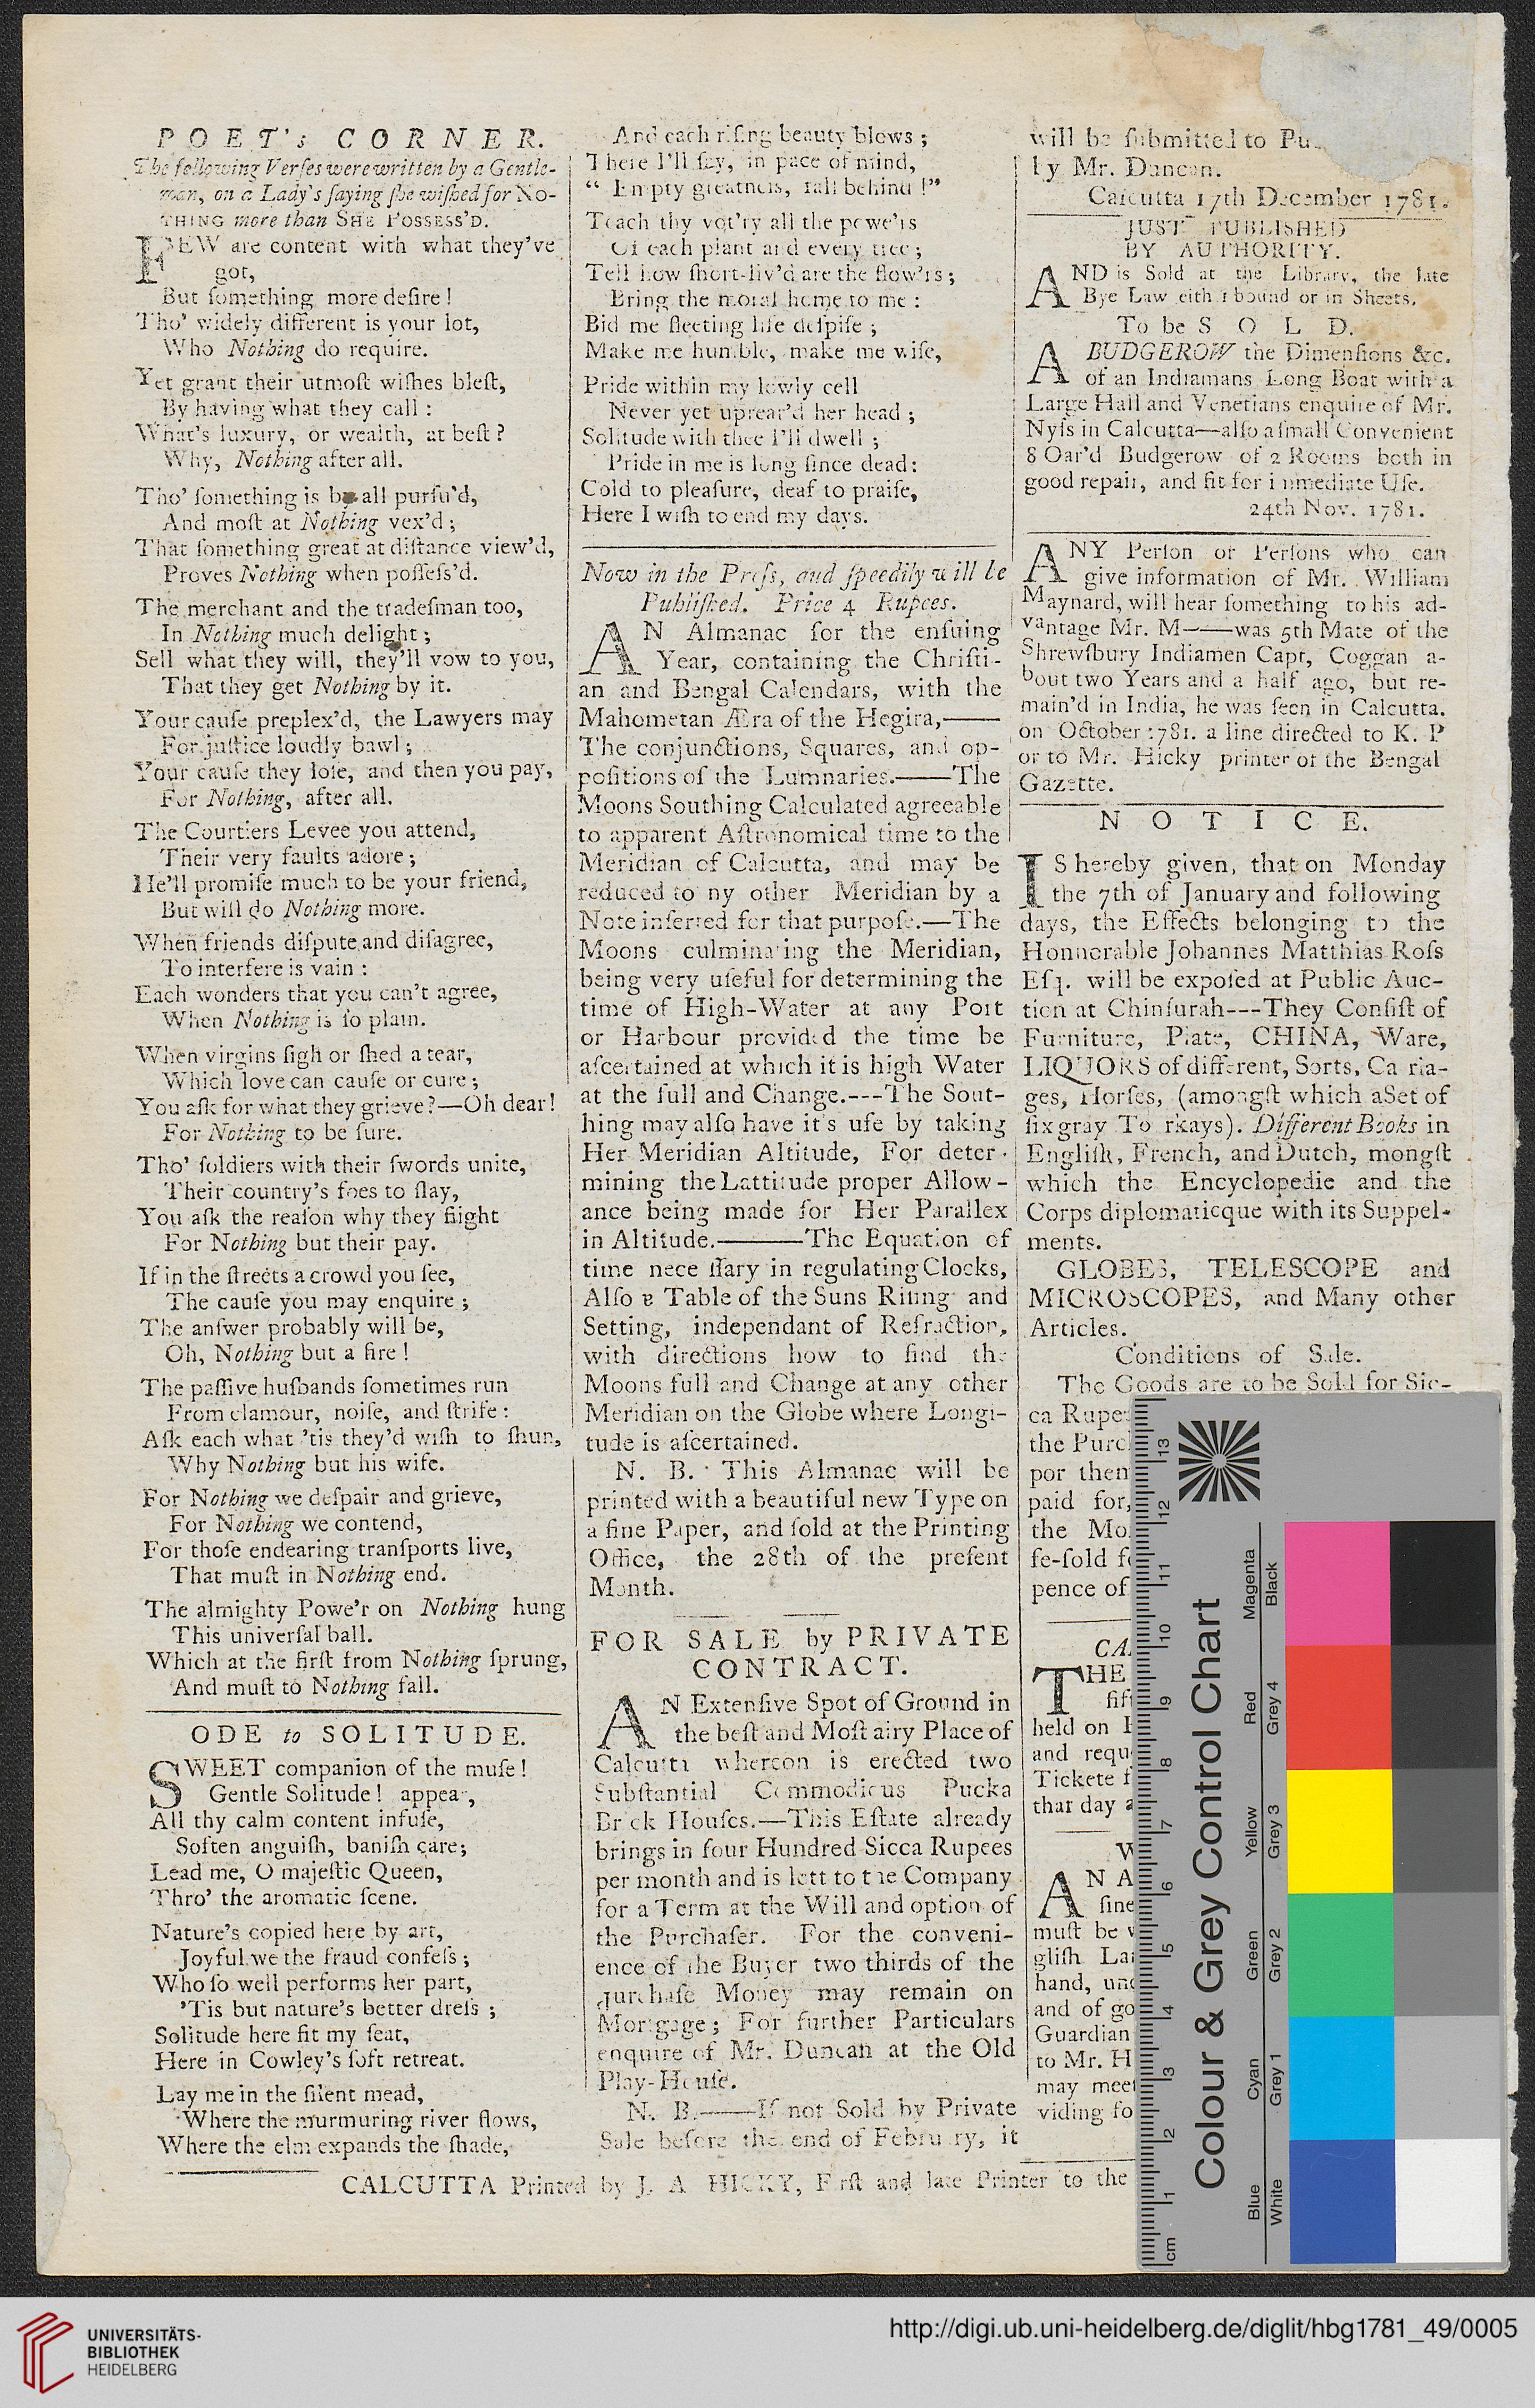 POET's CORNER.
The following Verſes were written by a Gentle-
man, on a Lady's ſaying ſhe wiſhed for NO-
THING more than SHE POSSESS'D.
FEW are content with what they've
got,
But ſomething more deſire!
Tho' widely different is your lot,
Who Nothing do require.
Yet grant their utmoſt wiſhes bleſt,
By having what they call:
What's luxury, or wealth, at beſt?
Why, Nothing after all.
Tho' ſomething is by all purſu'd,
And moſt at Nothing vex'd;
That ſomething great at diſtance view'd,
Proves Nothing when poſſeſs'd.
The merchant and the tradeſman too,
In Nothing much delight;
Sell what they will, they'll vow to you,
That they get Nothing by it.
Your cauſe preplex'd, the Lawyers may
For juſtice loudly bawl;
Your cauſe they loſe, and then you pay,
For Nothing, after all.
The Courtiers Levee you attend,
Their very faults adore;
He'll promiſe much to be your friend,
But will do Nothing more.
When friends diſpute and diſagree,
To interfere is vain:
Each wonders that you can't agree,
When Nothing is ſo plain.
When virgins ſigh or ſhed a tear,
Which love can cauſe or cure;
You aſk for what they grieve?—Oh dear!
For Nothing to be ſure.
Tho' ſoldiers with their ſwords unite,
Their country's foes to ſlay,
You aſk the reaſon why they fiight
For Nothing but their pay.
If in the ſtreets a crowd you ſee,
The cauſe you may enquire;
The anſwer probably will be,
Oh, Nothing but a fire!
The paſſive huſbands ſometimes run
From clamour, noiſe, and ſtrife:
Aſk each what 'tis they'd wiſh to ſhun,
Why Nothing but his wife.
For Nothing we deſpair and grieve,
For Nothing we contend,
For thoſe endearing tranſports live,
That muſt in Nothing end.
The almighty Powe'r on Nothing hung
This univerſal ball.
Which at the firſt from Nothing ſprung,
And muſt to Nothing fall.
ODE to SOLITUDE.
SWEET companion of the muſe!
Gentle Solitude! appear,
All thy calm content infuſe,
Soften anguiſh, baniſh care;
Lead me, O majeſtic Queen,
Thro' the aromatic ſcene.
Nature's copied here by art,
Joyful we the fraud confeſs;
Who ſo well performs her part,
'Tis but nature's better dreſs;
Solitude here fit my ſeat,
Here in Cowley's ſoft retreat.
Lay me in the ſilent mead,
Where the murmuring river flows,
Where the elm expands the ſhade,
And each riſing beauty blows;
There I'll ſay, in pace of mind,
“ Empty greatneſs, fall behind!”
Teach thy vot'ry all the powe'rs
Of each plant and every tree;
Tell how ſhort-liv'd are the flow'rs;
Bring the moral home to me:
Bid me fleeting life deſpiſe;
Make me humble, make me wiſe,
Pride within my lowly cell
Never yet uprear'd her head;
Solitude with thee I'll dwell;
Pride in me is long ſince dead:
Cold to pleaſure, deaf to praiſe,
Here I wiſh to end my days.
Now in the Preſs, and ſpeedily will be
Publiſhed. Price 4 Rupees.
AN Almanac for the enſuing
Year, containing the Chriſti-
an and Bengal Calendars, with the
Mahometan Æra of the Hegira,——
The conjunctions, Squares, and op-
poſitions of the Lumnaries.——The
Moons Southing Calculated agreeable
to apparent Aſtronomical time to the
Meridian of Calcutta, and may be
reduced to ny other Meridian by a
Note inſerted for that purpoſe.—The
Moons culminating the Meridian,
being very uſeful for determining the
time of High-Water at any Port
or Harbour provided the time be
aſcertained at which it is high Water
at the full and Change.---The Sout-
hing may alſo have it's uſe by taking
Her Meridian Altitude, For deter-
mining the Lattitude proper Allow-
ance being made for Her Parallex
in Altitude.———The Equation of
time nece ſſary in regulating Clocks,
Alſo a Table of the Suns Riſing and
Setting, independant of Refraction,
with directions how to find the
Moons full and Change at any other
Meridian on the Globe where Longi-
tude is aſcertained.
N. B. This Almanac will be
printed with a beautiful new Type on
a fine Paper, and ſold at the Printing
Office, the 28th of the preſent
Month.
FOR SALE by PRIVATE
CONTRACT.
AN Extenſive Spot of Ground in
the beſt and Moſt airy Place of
Calcutta whereon is erected two
Subſtantial Commodious Pucka
Brick Houſes.—This Eſtate already
brings in four Hundred Sicca Rupees
per month and is lett to the Company
for a Term at the Will and option of
the Purchaſer. For the conveni-
ence of the Buyer two thirds of the
purchaſe Money may remain on
Mortgage; For further Particulars
enquire of Mr. Duncan at the Old
Play-Houſe.
N. B.——If not Sold by Private
Sale before the end of February, it
will be ſubmitted to Pu
by Mr. Duncan.
Calcutta 17th December 1781.
JUST PUBLISHED
BY AUTHORITY.
AND is Sold at the Library, the late
Bye Law either bound or in Sheets.
To be SOLD.
A BUDGEROW the Dimenſions &c.
of an Indiamans Long Boat with a
Large Hall and Venetians enquire of Mr.
Nyſs in Calcutta—alſo a ſmall Convenient
8 Oar'd Budgerow of 2 Rooms both in
good repair, and fit for immediate Uſe.
24th Nov. 1781.
ANY Perſon or Perſons who can
give information of Mr. William
Maynard, will hear ſomething to his ad-
vantage Mr. M——was 5th Mate of the
Shrewſbury Indiamen Capt, Coggan a-
bout two Years and a half ago, but re-
main'd in India, he was ſeen in Calcutta.
on October 1781. a line directed to K. P
or to Mr. Hicky printer of the Bengal
Gazette.
NOTICE.
IS hereby given, that on Monday
the 7th of January and following
days, the Effects belonging to the
Honnorable Johannes Matthias Roſs
Eſq. will be expoſed at Public Auc-
tion at Chinſurah---They Conſiſt of
Furniture, Plate, CHINA, Ware,
LIQUORS of different, Sorts, Ca ria-
ges, Horſes, (amongſt which a Set of
ſix gray To rkays). Different Books in
Engliſh, French, and Dutch, mongſt
which the Encyclopedie and the
Corps diplomaticque with its Suppel-
ments.
GLOBES, TELESCOPE and
MICROSCOPES, and Many other
Articles.
Conditions of Sale.
The Goods are to be Sold for Sic-
ca Rupe
the Purc
por then
paid for,
the Mo
fe-ſold f
pence of
CA
THE
fif
held on
and requ
Tickete f
that day a
W
AN A
fine
muſt be
gliſh La
hand, und
and of go
Guardian
to Mr. H
may meet
viding fo
CALCUTTA Printed by J. A HICKY, Firſt and late Printer to the
Colour & Grey Control Chart
Blue Cyan Green Yellow Red Magenta
White Grey 1 Grey 2 Grey 3 Grey 4 Black
cm 1 2 3 4 5 6 7 8 9 10 11 12 13
UNIVERSITÄTS-
BIBLIOTHEK
HEIDELBERG
http://digi.ub.uni-heidelberg.de/diglit/hbg1781_49/0005